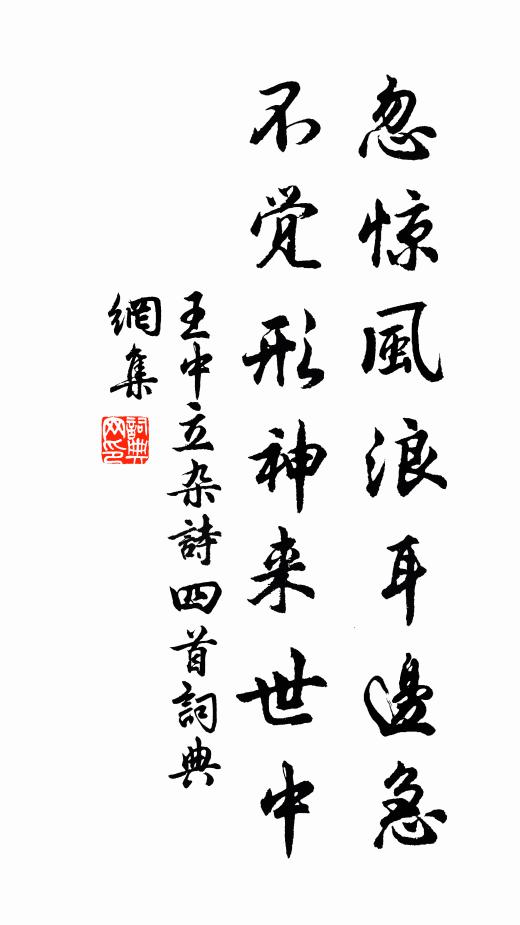 忽惊風浪耳邊急
不覚形神来世中
王中立杂詩四首詞典
網集
詞典
网印